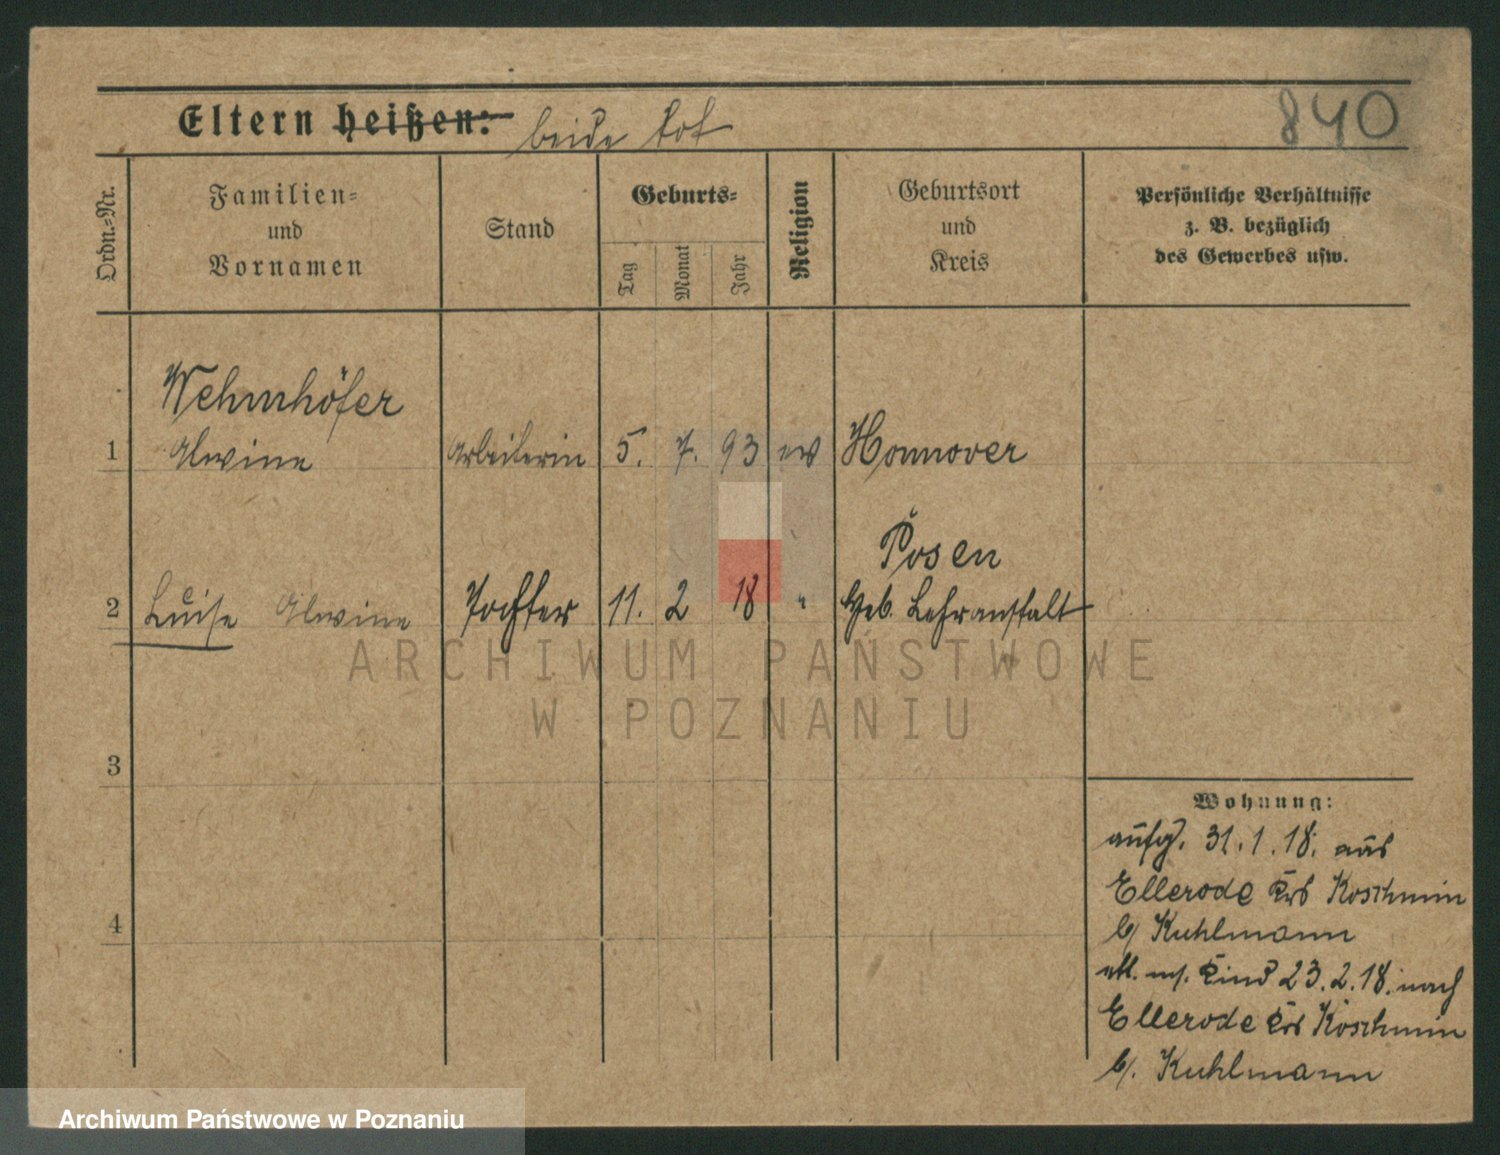 Eltern heißen: beide tot
840
Ordn.-Nr.
Familien-
und
Vornamen
Stand
Geburts-
Tag
Monat
Jahr
Religion
Geburtsort
und
Kreis
Persönliche Verhältnisse
z. B. bezüglich
des Gewerbes usw.
Wehmhöfer
1 Alwine Arbeiterin 5. 7. 93 ev Hannover
Posen
2 Luise Alwine Tochter 11. 2 18 " Heb. Lehranstalt
3
4
Wohnung:
aufg. 31.1.18. aus
Ellerode Krs Koschmin
b/ Kuhlmann
abl. m/. Kind 23.2.18. nach
Ellerode Krs Koschmin
b/. Kuhlmann
ARCHIWUM PAŃSTWOWE
W POZNANIU
Archiwum Państwowe w Poznaniu